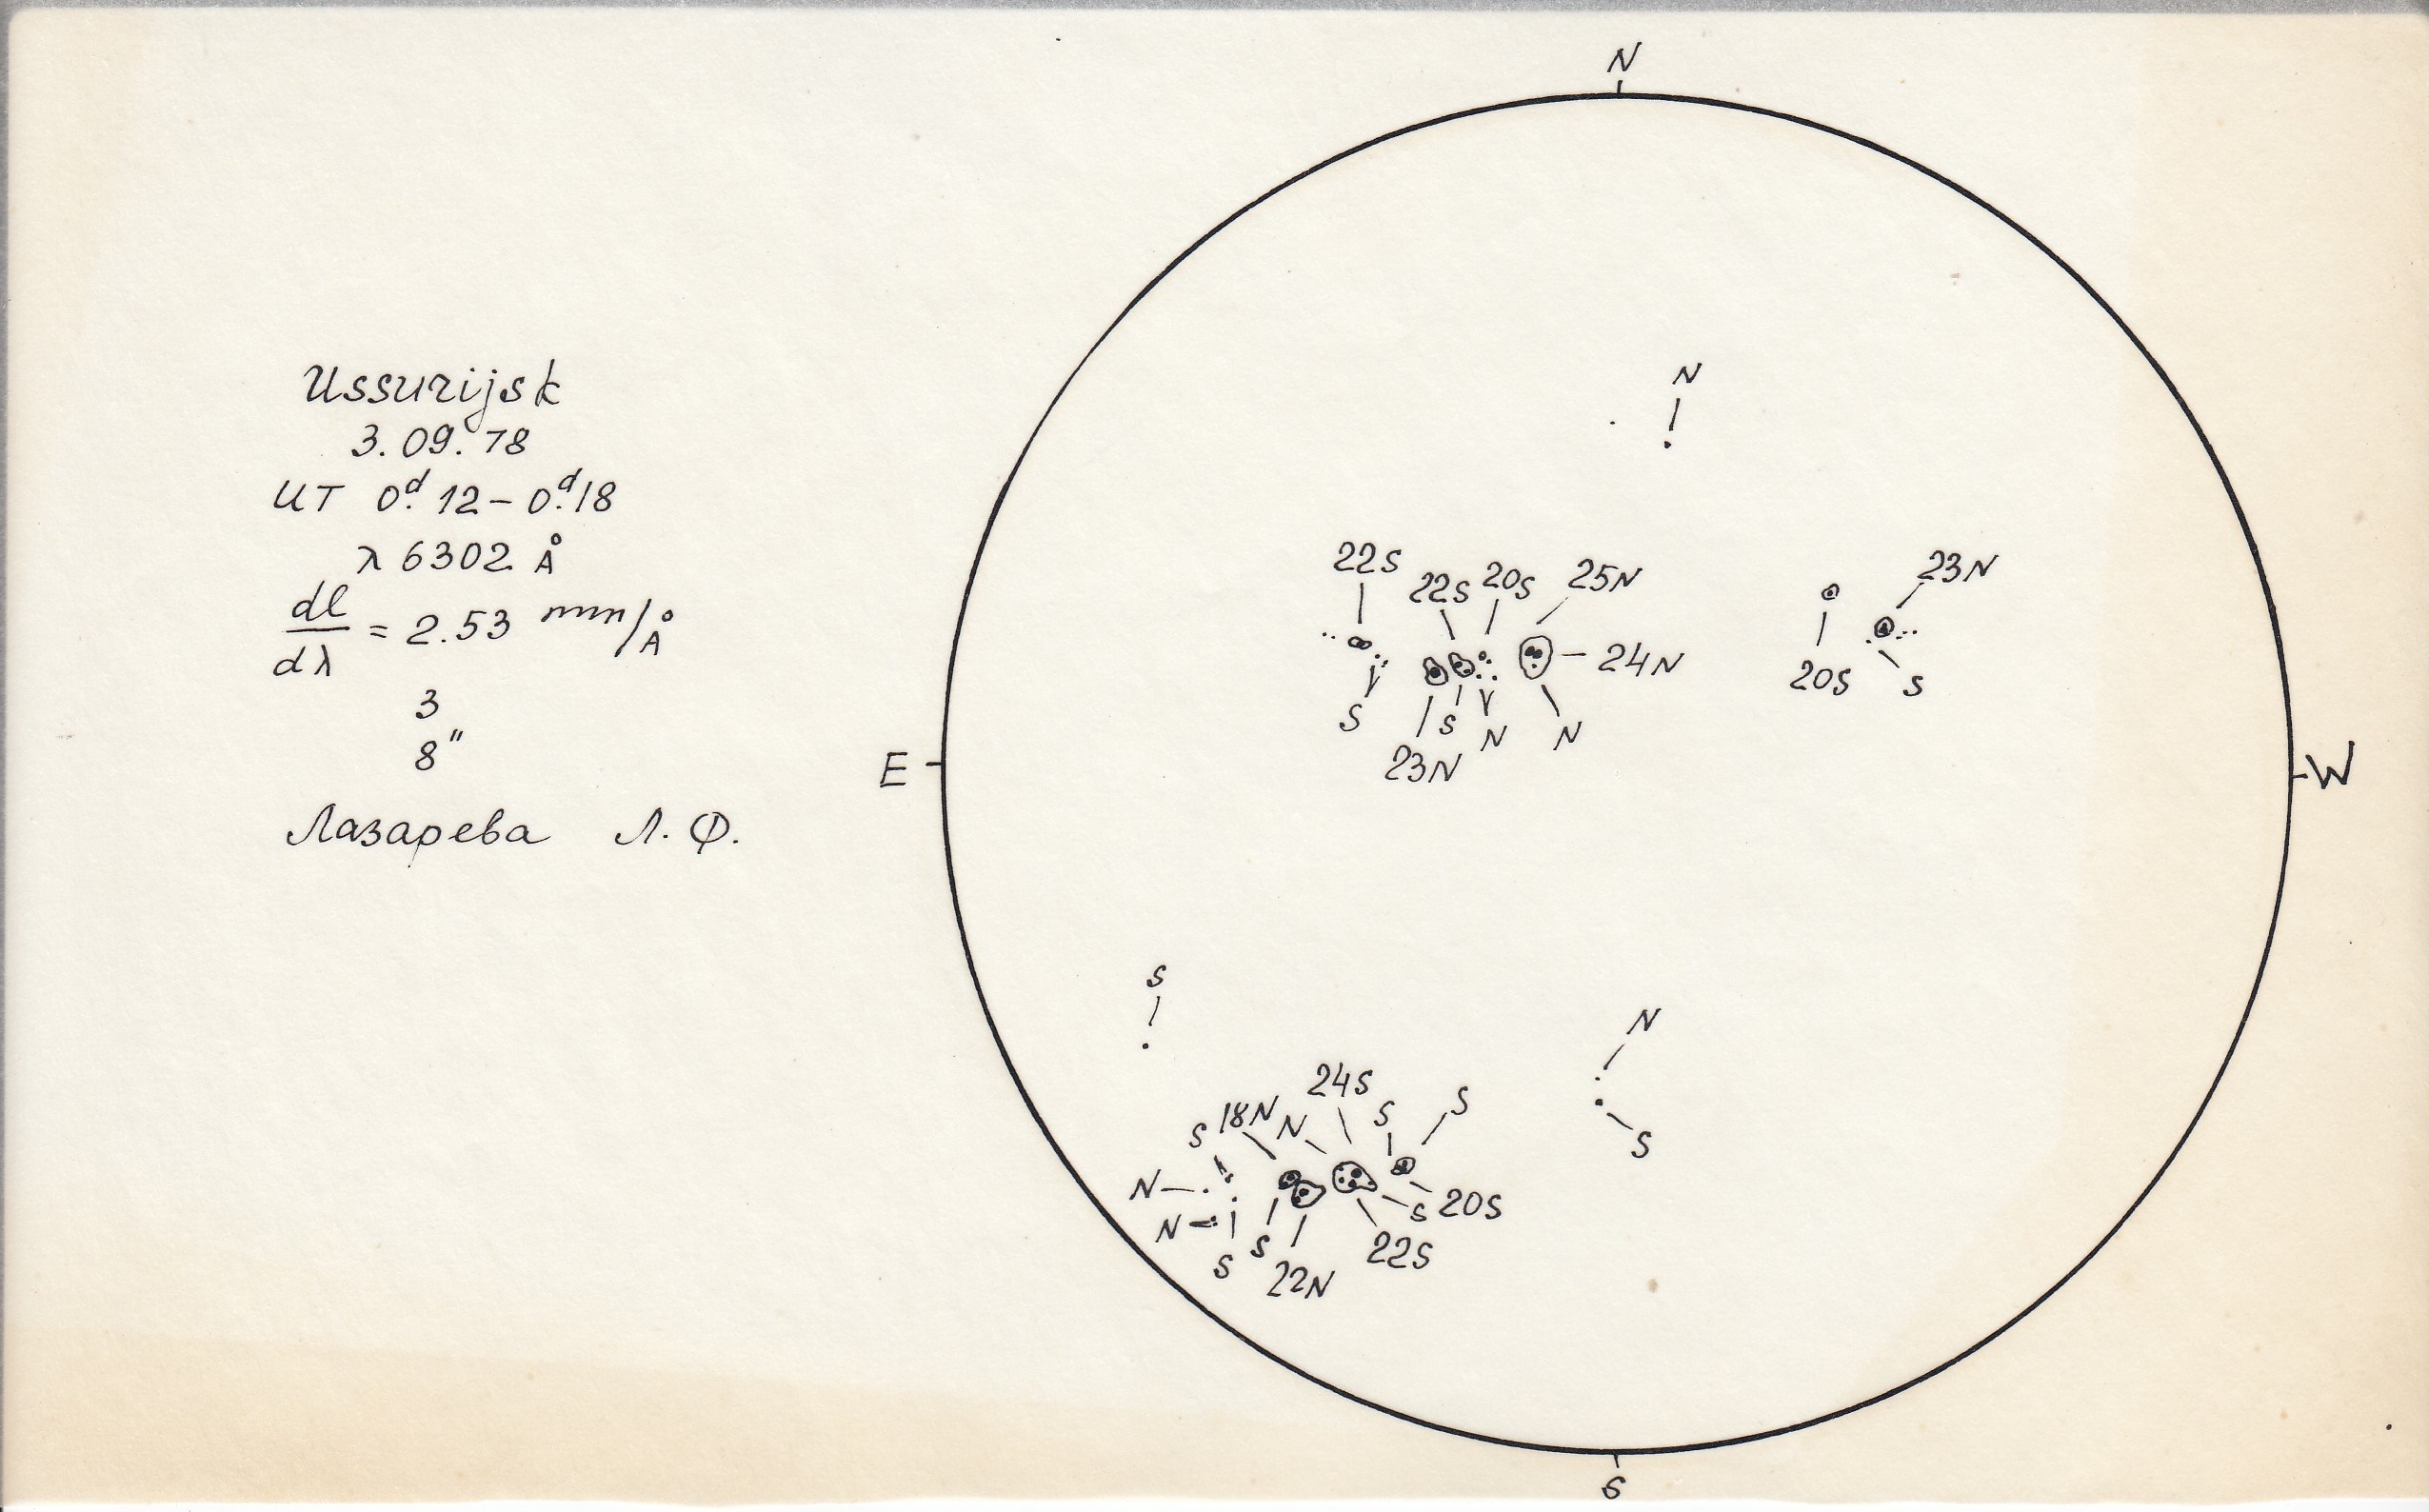 Ussurijsk
3.09.78
UT 0ᵈ.12–0ᵈ.18
λ 6302 Å
dl/dλ = 2.53 mm/Å
3
8"
Лазарева Л.Ф.
N
N
22S 22S 20S 25N
24N
S 23N S N N
23N
20S S
E
W
S
N
S
24S S S
S 18N N
N
N
S S 22N 22S
S 20S
S